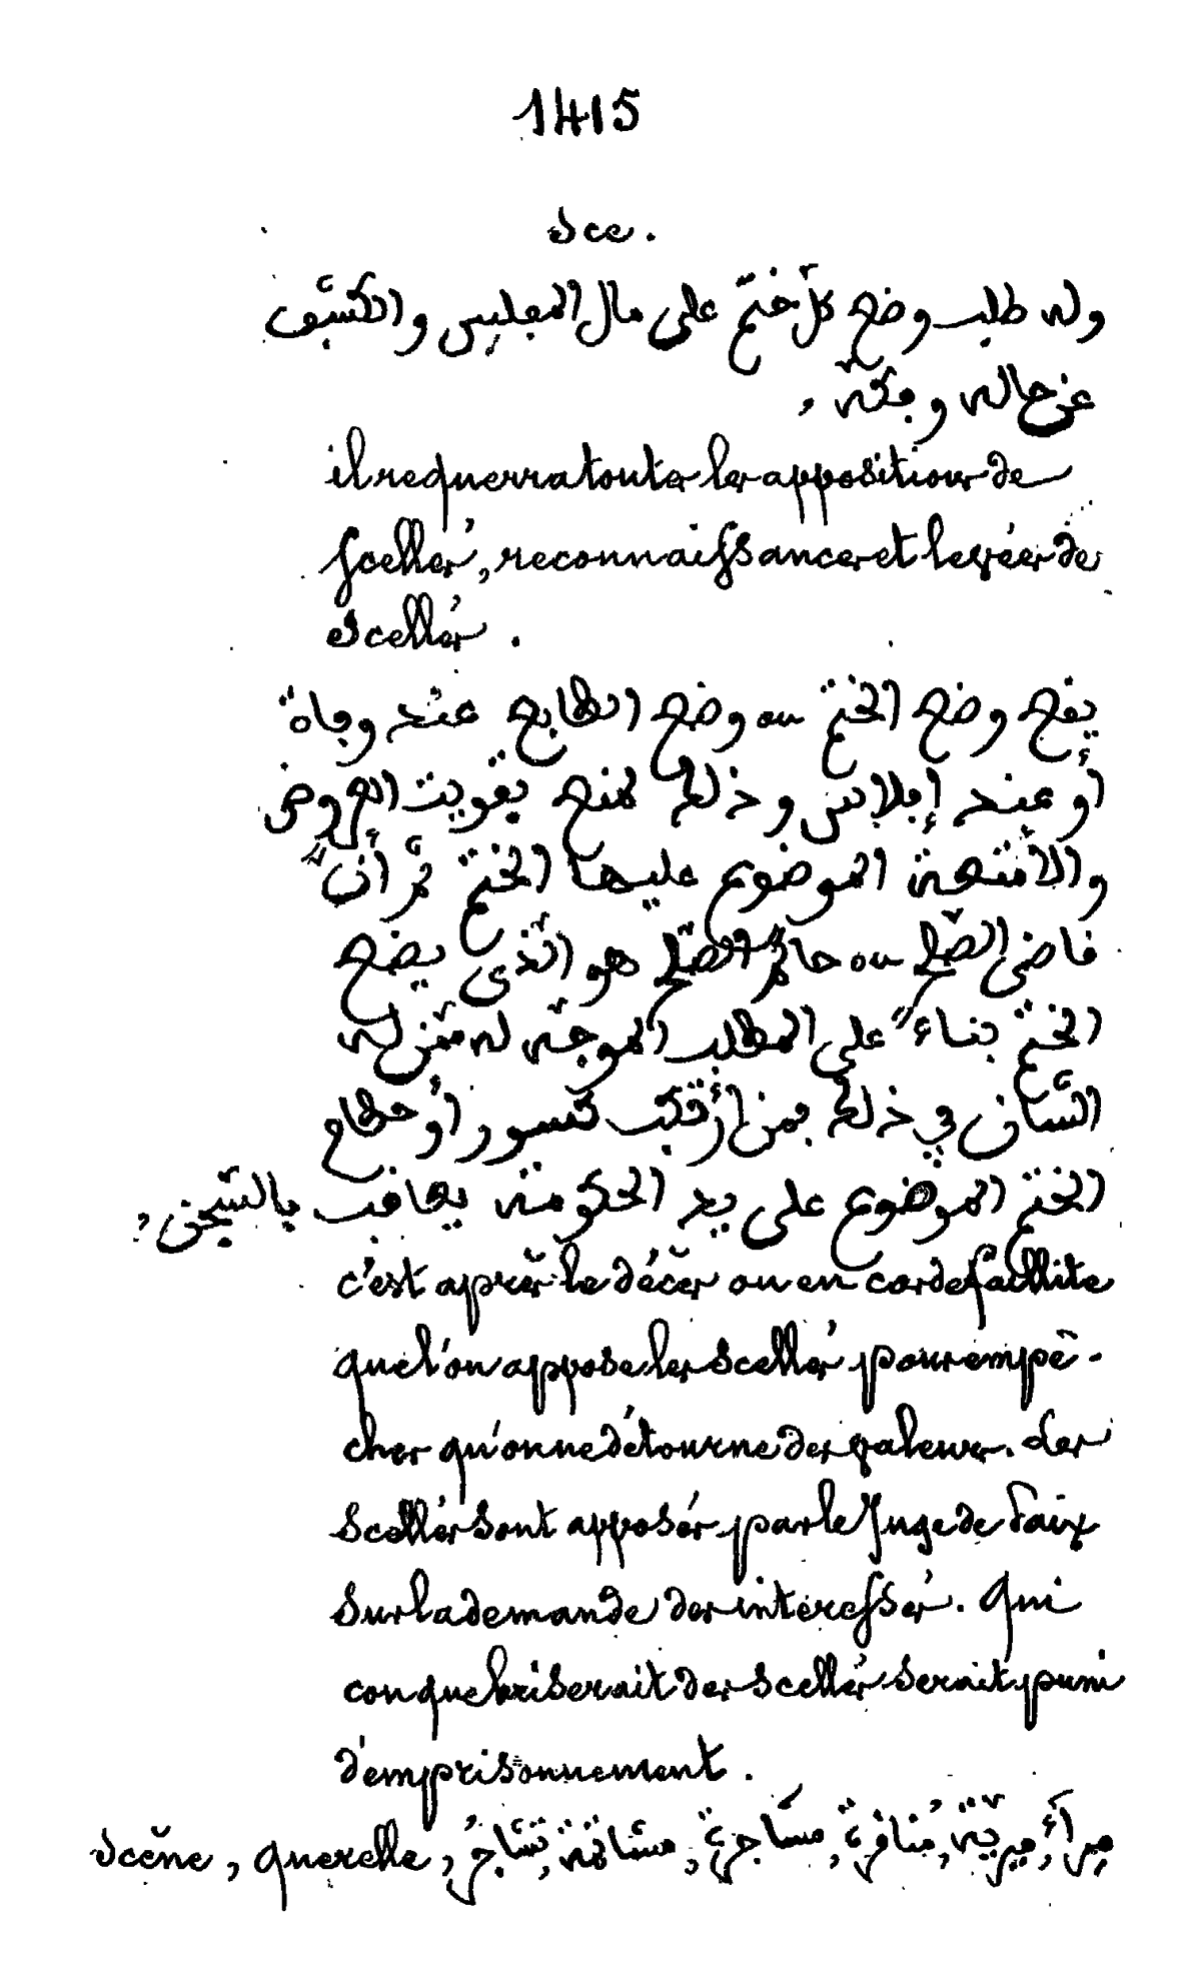 1415
Sce.
وله طلب وضع كلّ ختم على مال المفلس والكشف
عن حاله وفكّه ,
il requerra toutes les appositions de
scellés, reconnaissances et levées de
scellés.
يقع وضع الختم ou وضع الطابع عند وفاة
أو عند إفلاس وذلك لمنع تفويت العروض
والأمتعة الموضوع عليها الختم ثم أنّ
قاضى الصّلح ou حاكم الصّلح هو الّذى يضع
الختم بناء على المطلب الموجّه له ممّن له
الشّان في ذلك فمن ارتكب كسور أو حطام
الختم الموضوع على يد الحكومة يعاقب بالسّجن ,
c'est après le décès ou en cas de faillite
que l'on appose les scellés pour empê-
cher qu'on ne détourne des valeurs. Les
scellés sont apposés par le Juge de Paix
sur la demande des intéressés. Qui
conque briserait des scellés serait puni
d'emprisonnement.
Scène, querelle, مراء, مرية, منافرة, مشاجرة, مشاتمة, تشاجر